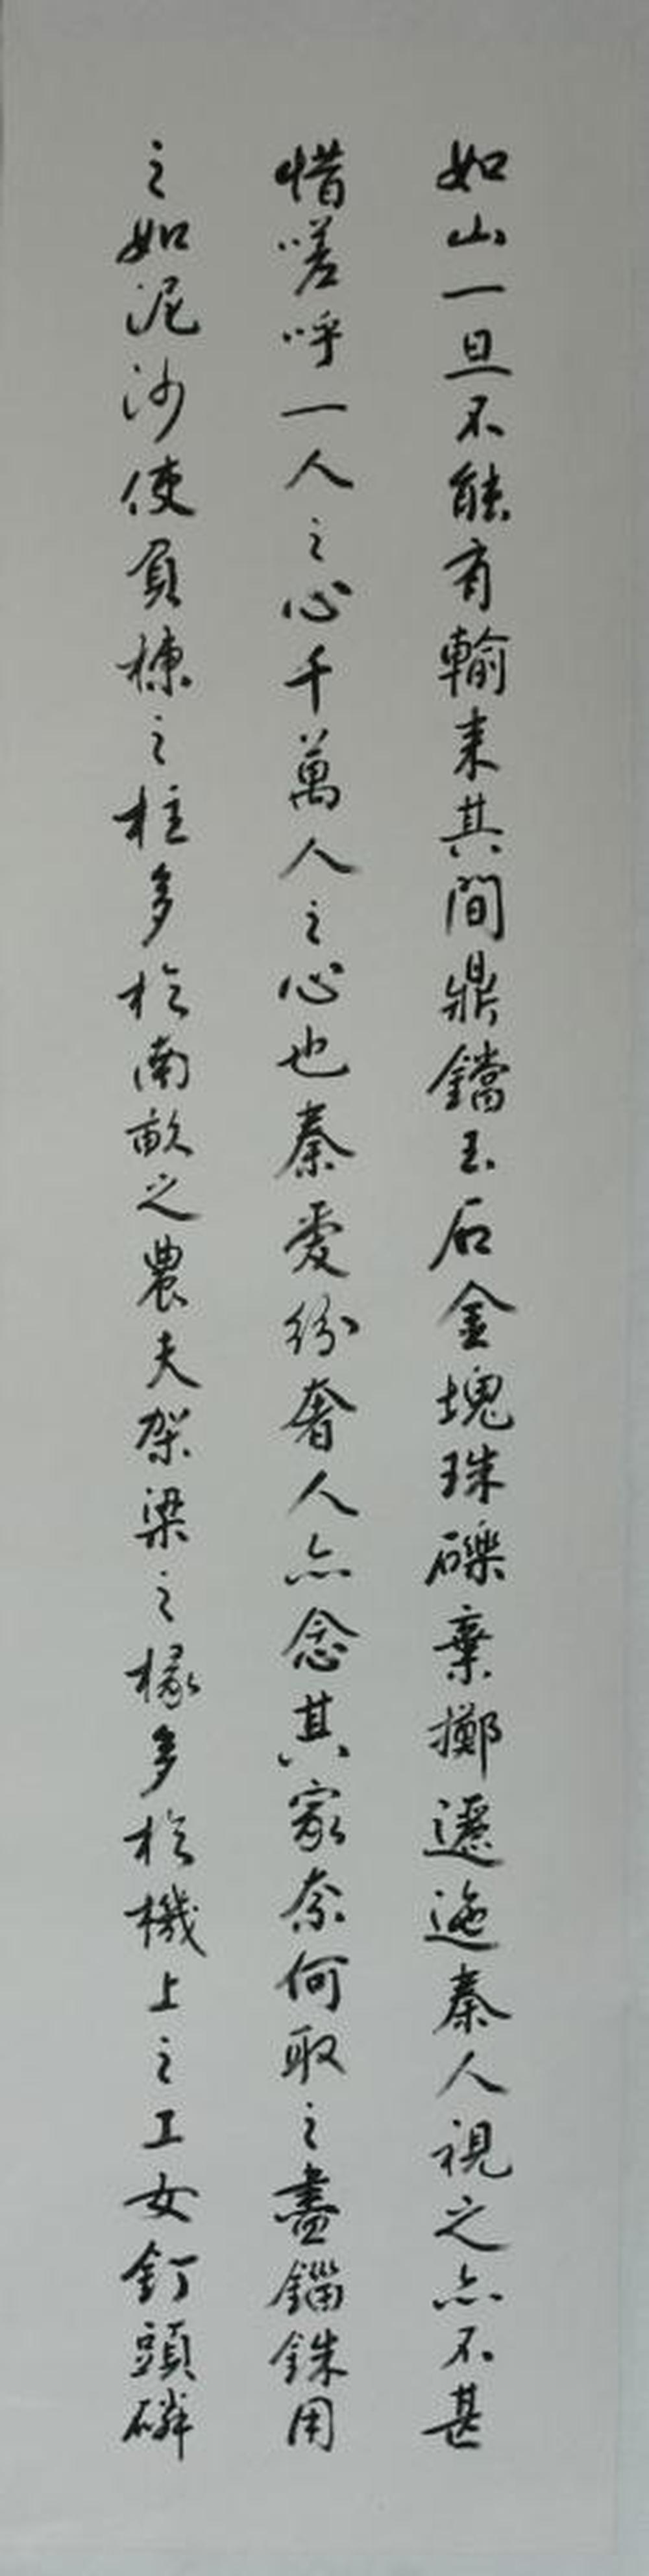 如山一旦不能有輸来其間鼎鐺玉石金塊珠礫棄擲邐迤秦人視之亦不甚
惜嗟呼一人之心千萬人之心也秦愛紛奢人亦念其家奈何取之盡錙銖用
之如泥沙使負棟之柱多於南畝之農夫架梁之椽多於機上之工女釘頭磷